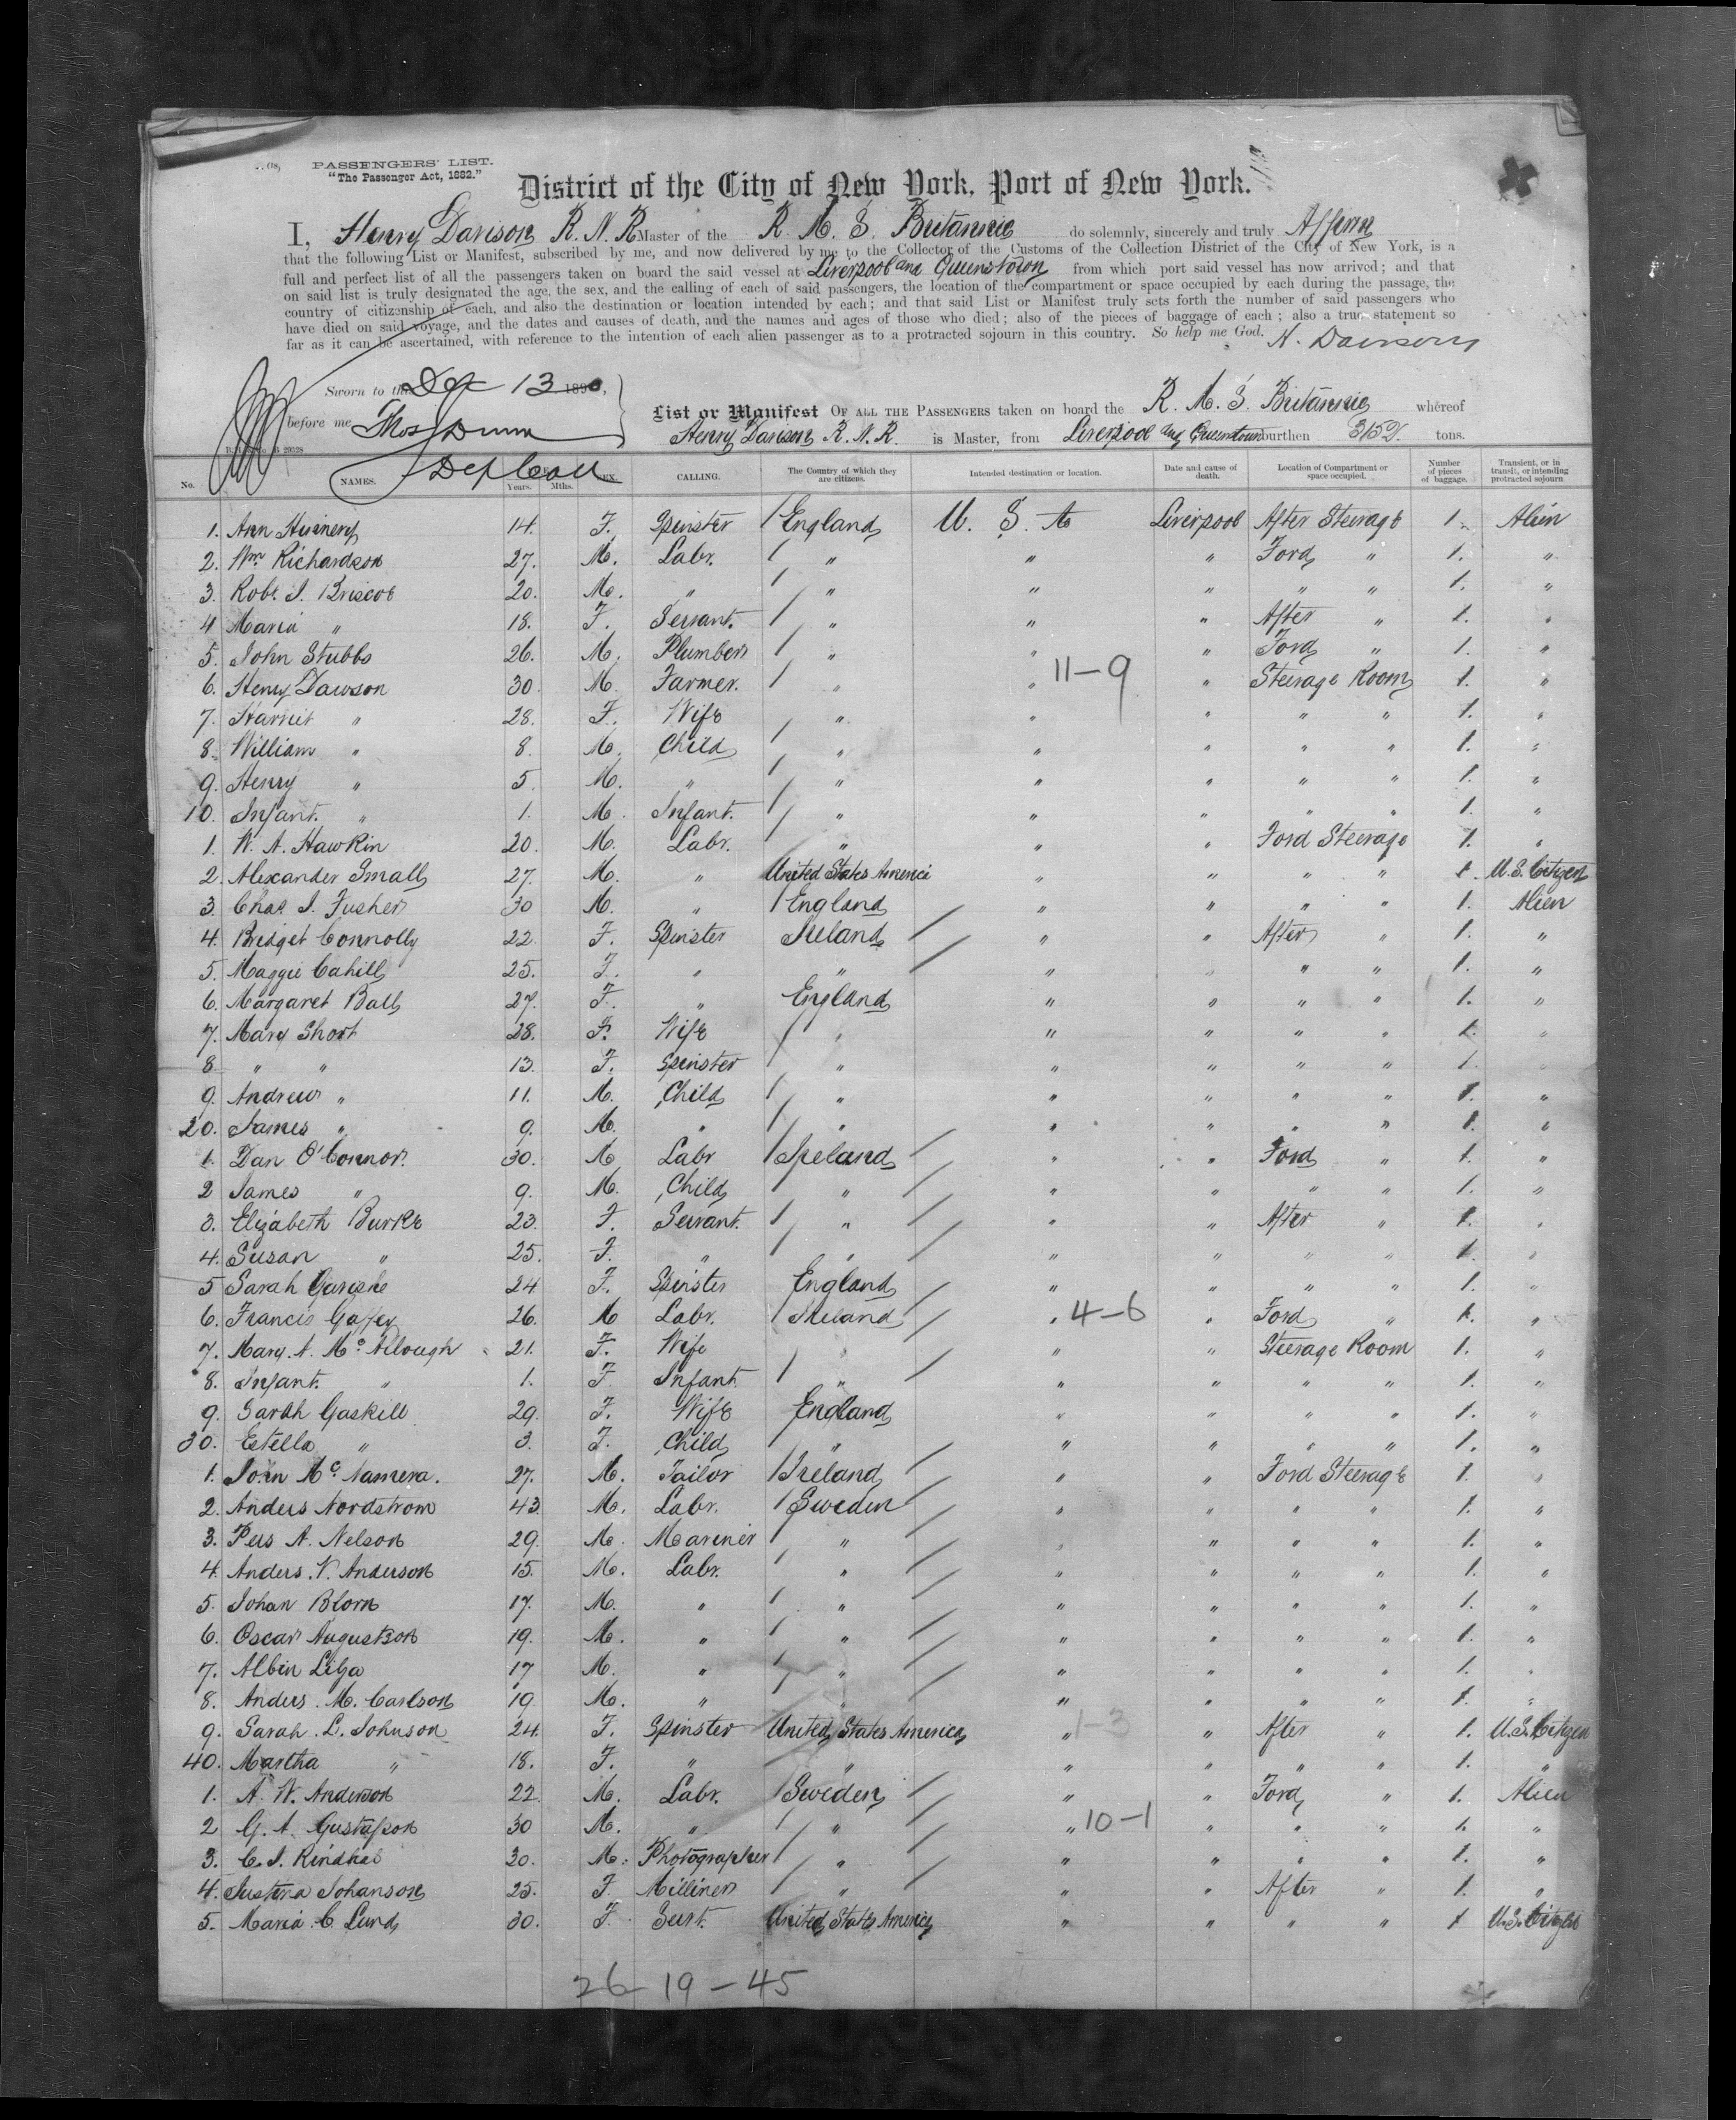 PASSENGERS' LIST.
"The Passenger Act, 1882."
District of the City of New York, Port of New York.
I, Henry Davison R.N.R Master of the R. M. S. Britannic do solemnly, sincerely and truly Affirm
that the following List or Manifest, subscribed by me, and now delivered by me to the Collector of the Customs of the Collection District of the City of New York, is a
full and perfect list of all the passengers taken on board the said vessel at Liverpool and Queenstown from which port said vessel has now arrived; and that
on said list is truly designated the age, the sex, and the calling of each of said passengers, the location of the compartment or space occupied by each during the passage, the
country of citizenship of each, and also the destination or location intended by each; and that said List or Manifest truly sets forth the number of said passengers who
have died on said voyage, and the dates and causes of death, and the names and ages of those who died; also of the pieces of baggage of each; also a true statement so
far as it can be ascertained, with reference to the intention of each alien passenger as to a protracted sojourn in this country. So help me God. H. Davison
Sworn to this 13 1890,
before me Thos Dunn
Dep Coll
List or Manifest OF ALL THE PASSENGERS taken on board the R. M. S. Britannic whereof
Henry Davison R.N.R. is Master, from Liverpool and Queenstown burthen 3152 tons.
No. NAMES. Years. Mths. SEX. CALLING. The Country of which they are citizens. Intended destination or location. Date and cause of death. Location of Compartment or space occupied. Number of pieces of baggage. Transient, or in transit, or intending protracted sojourn.
1. Ann 14. F. Spinster England U. S. A Liverpool After Steerage 1. Alien
2. Wm Richardson 27. M. Labr. " " " Ford " 1. "
3. Robt. J. Briscoe 20. M. " " " " " " 1. "
4 Maria " 18. F. Servant. " " " After " 1. "
5. John Stubbs 26. M. Plumber " " " Ford " 1. "
6. Henry Dawson 30 M. Farmer. " " 11-9 " Steerage Room 1. "
7. Harriet " 28. F. Wife " " " " " 1. "
8. William " 8. M. Child " " " " " 1. "
9. Henry " 5. M. " " " " " " 1. "
10. Infant. " 1. M. Infant. " " " " " 1. "
1. W. A. Hawkin 20. M. Labr. " " " Ford Steerage 1. "
2. Alexander Small 27. M. " United States America " " " " 1. U.S. Citizen
3. Chas. J. Fusher 30 M. " England " " " " 1. Alien
4. Bridget Connolly 22. F. Spinster Ireland " " After " 1. "
5. Maggie Cahill 25. F. " " " " " " 1. "
6. Margaret Ball 27. F. " England " " " " 1. "
7. Mary Short 28. F. Wife " " " " " 1. "
8 " " 13. F. Spinster " " " " " 1. "
9. Andrew " 11. M. Child " " " " " 1. "
20. James " 9. M. " " " " " " 1. "
1. Dan O'Connor. 30. M Labr Ireland " " Ford " 1. "
2 James " 9. M. Child " " " " " 1. "
3. Elizabeth Burke 23. F. Servant. " " " After " 1. "
4. Susan " 25. F. " " " " " " 1. "
5 Sarah 24 F. Spinster England " " " " 1. "
6. Francis Gaffey 26. M Labr. Ireland " 4-6 " Ford " 1. "
7. Mary. A. 21. F. Wife " " " Steerage Room 1. "
8. Infant. " 1. F Infant. " " " " " 1. "
9. Sarah Gaskill 29. F. Wife England " " " " 1. "
30. Estella " 3. F. Child " " " " " 1. "
1. John McNamera. 27. M. Tailor Ireland " " Ford Steerage 1. "
2. Anders Nordstrom 43. M. Labr. Sweden " " " " 1. "
3. Pers A. Nelson 29. M. Mariner " " " " " 1. "
4. Anders. V. Anderson 15. M. Labr. " " " " " 1. "
5. Johan Blorn 17. M. " " " " " " 1. "
6. Oscar Augustson 19. M. " " " " " " 1. "
7. Albin Lilja 17 M. " " " " " " 1. "
8. Anders. M. Carlson 19. M. " " " " " " 1. "
9. Sarah. L. Johnson 24. F. Spinster United States America " 1-3 " After " 1. U.S. Citizen
40. Martha " 18. F. " " " " " " 1. "
1. A. W. Anderson 22. M. Labr. Sweden " " Ford " 1. Alien
2 G. A. Gustafson 30 M. " " " 10-1 " " " 1. "
3. C. J. 30. M. Photographer " " " " " 1. "
4. Justina Johanson 25. F. Milliner " " " After " 1. "
5. Maria C Lund 30. F. Servt. United States America " " " " 1 U.S. Citizen
26-19-45